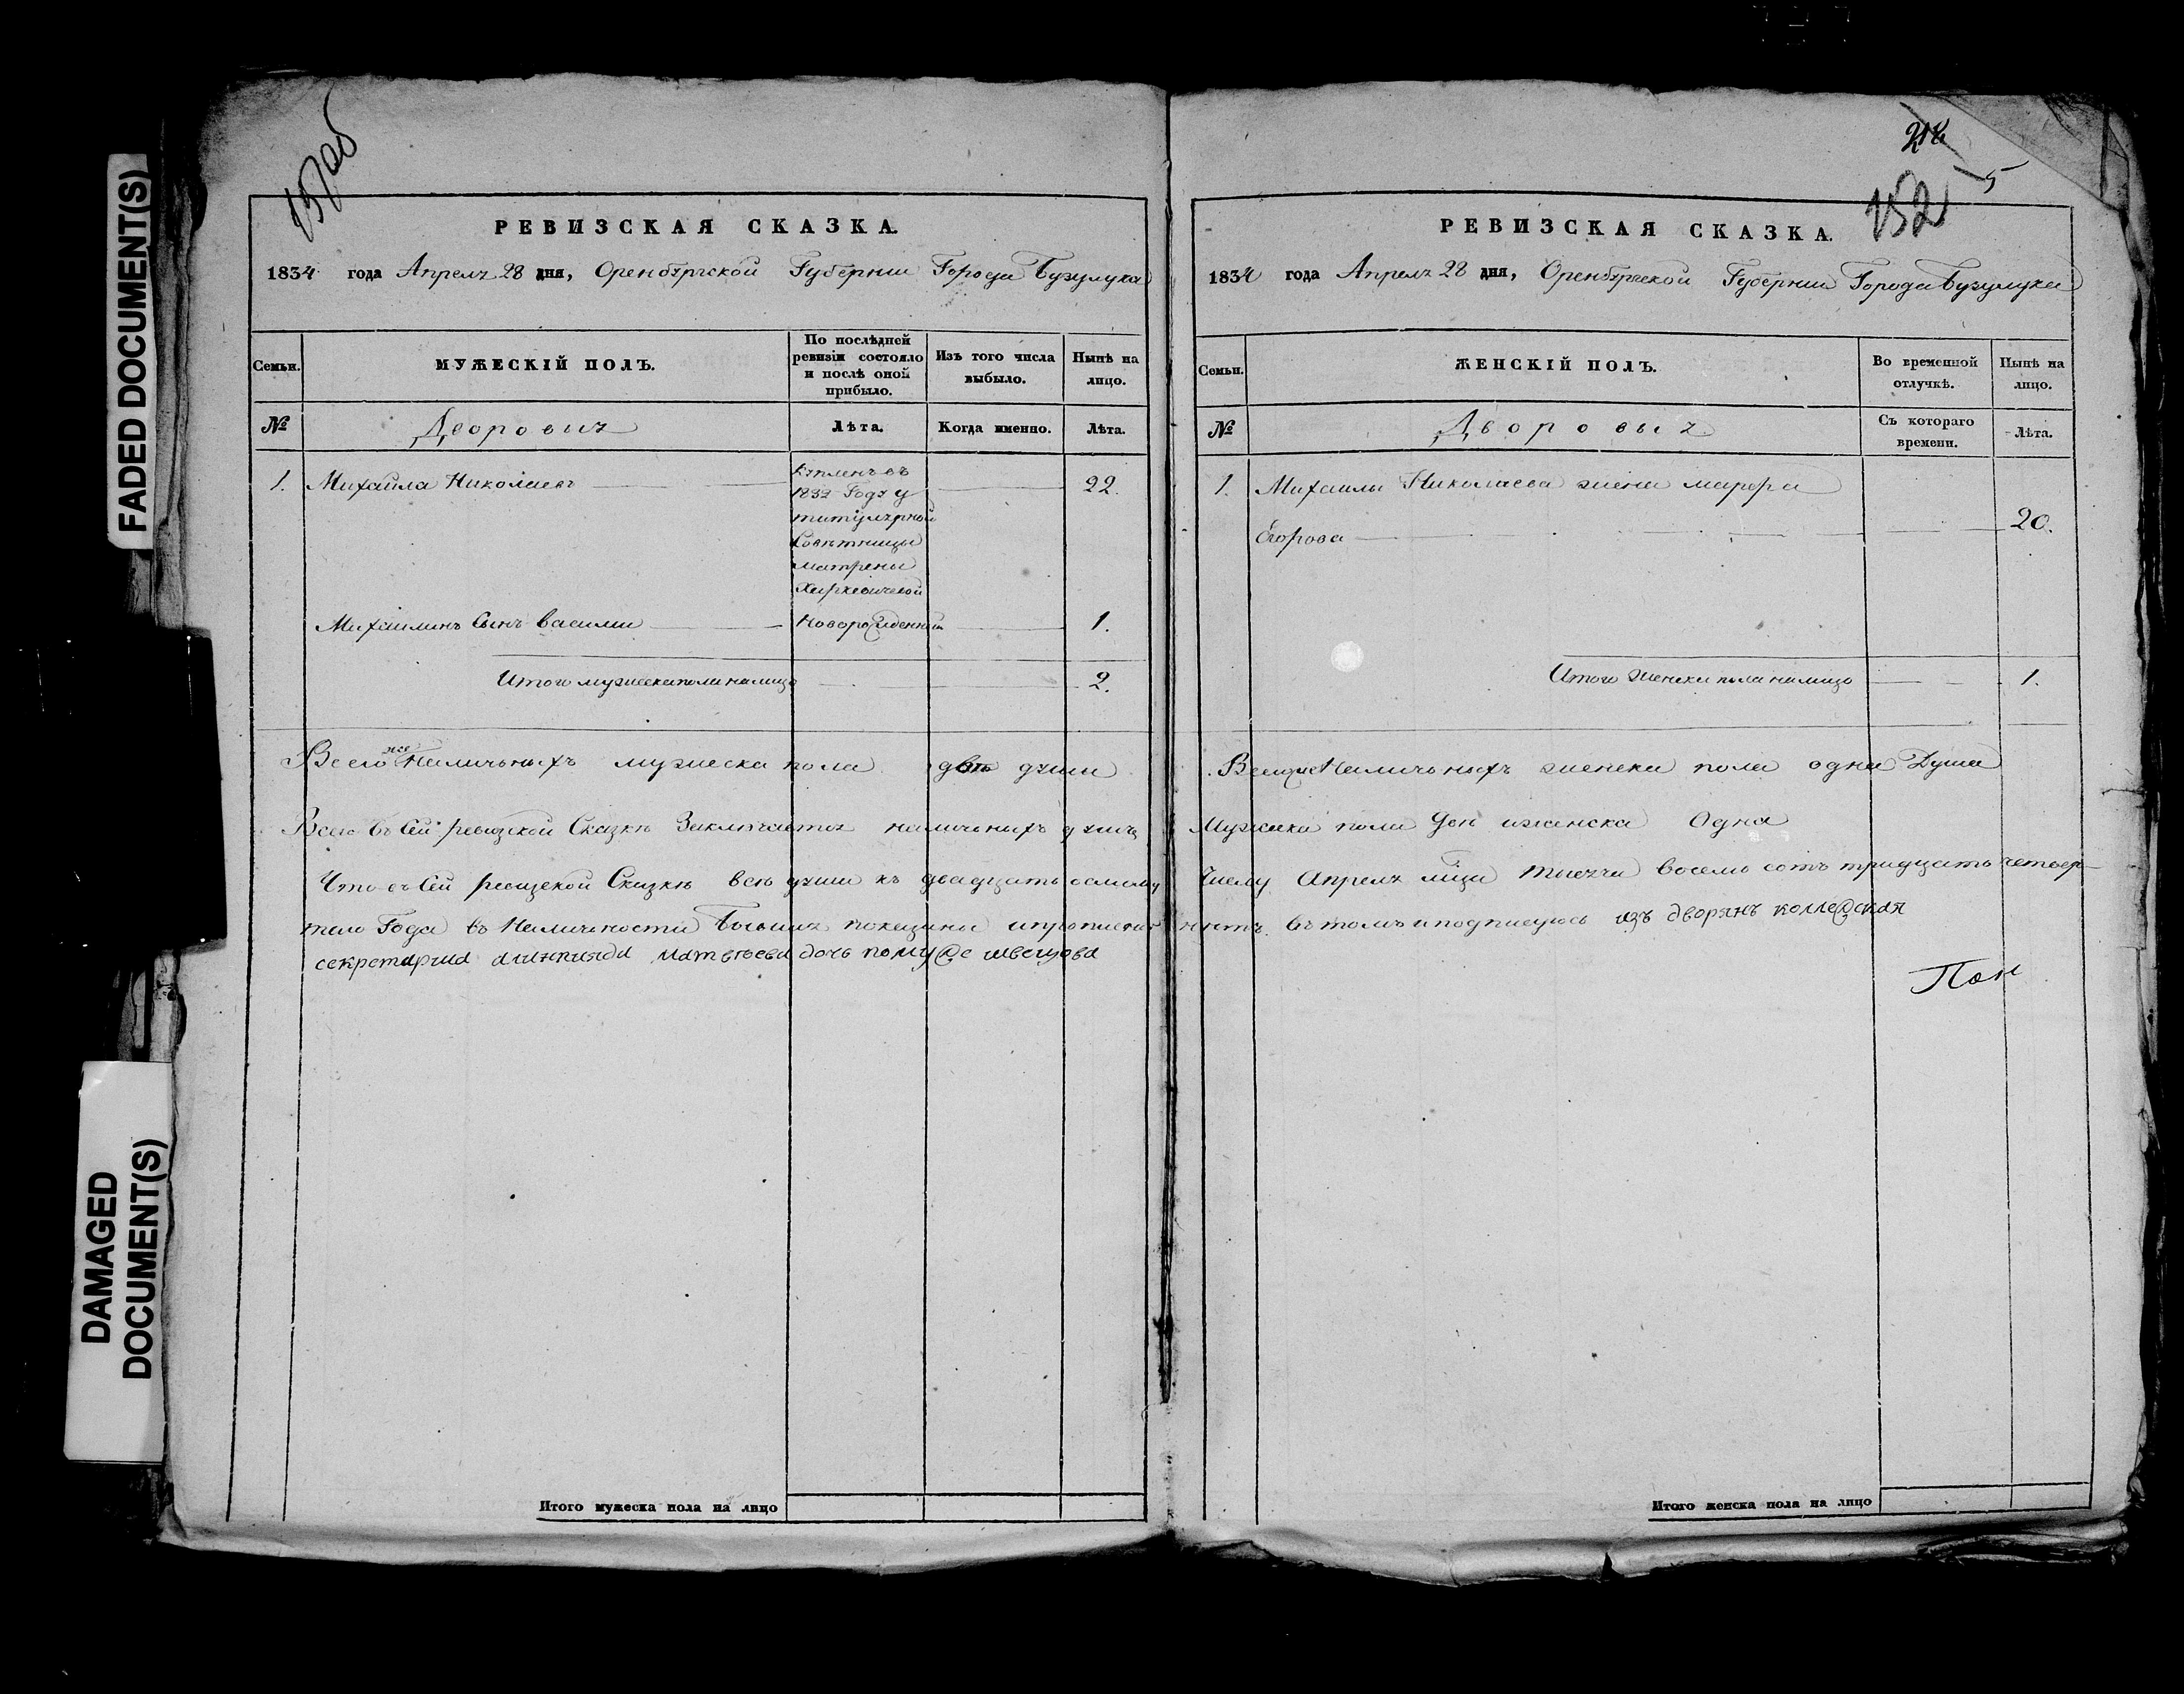 FADED DOCUMENT(S)
DAMAGED
DOCUMENT(S)
РЕВИЗСКАЯ СКАЗКА.
1834 года Апреля 28 дня, Оренбургской Губернии Города Бузулука
Семьи.
МУЖЕСКІЙ ПОЛЪ.
По послѣдней
ревизіи состояло
и послѣ оной
прибыло.
Изъ того числа
выбыло.
Нынѣ на
лицо.
№
Дворовыхъ
Лѣта.
Когда именно.
Лѣта.
1. Михайла Николаевъ
Купленъ въ
1832 Году у
титулярной
Совѣтницы
Матрены
22.
Михайлинъ Сынъ Василий Новорожденный 1.
Итого мужеска пола на лицо 2.
Всего же Наличныхъ мужеска пола двѣ души
Всего въ Сей ревизкой Сказкѣ Заключается наличныхъ душъ
Что въ Сей ревизской Сказкѣ всѣ души къ двадцать осмому
таго Года въ Наличности бывшия показаны
секретарша матвѣева дочь швецова
Итого мужеска пола на лицо
218
5
152
РЕВИЗСКАЯ СКАЗКА.
1834 года Апреля 28 дня, Оренбургской Губернии Города Бузулука
Семьи.
ЖЕНСКІЙ ПОЛЪ.
Во временной
отлучкѣ.
Нынѣ на
лицо.
№
Дворовыхъ
Съ котораго
времени.
Лѣта.
1. Михайлы Николаева жена марфа
Егорова 20.
Итого женска пола на лицо 1.
Всегоже Наличныхъ женска пола одна Душа
Мужеска пола Две иженска Одна
Числу Апреля мца тысяча восемь сотъ тридцать четвер-
въ томъ и подписуюсь изъ дворянъ
Итого женска пола на лицо